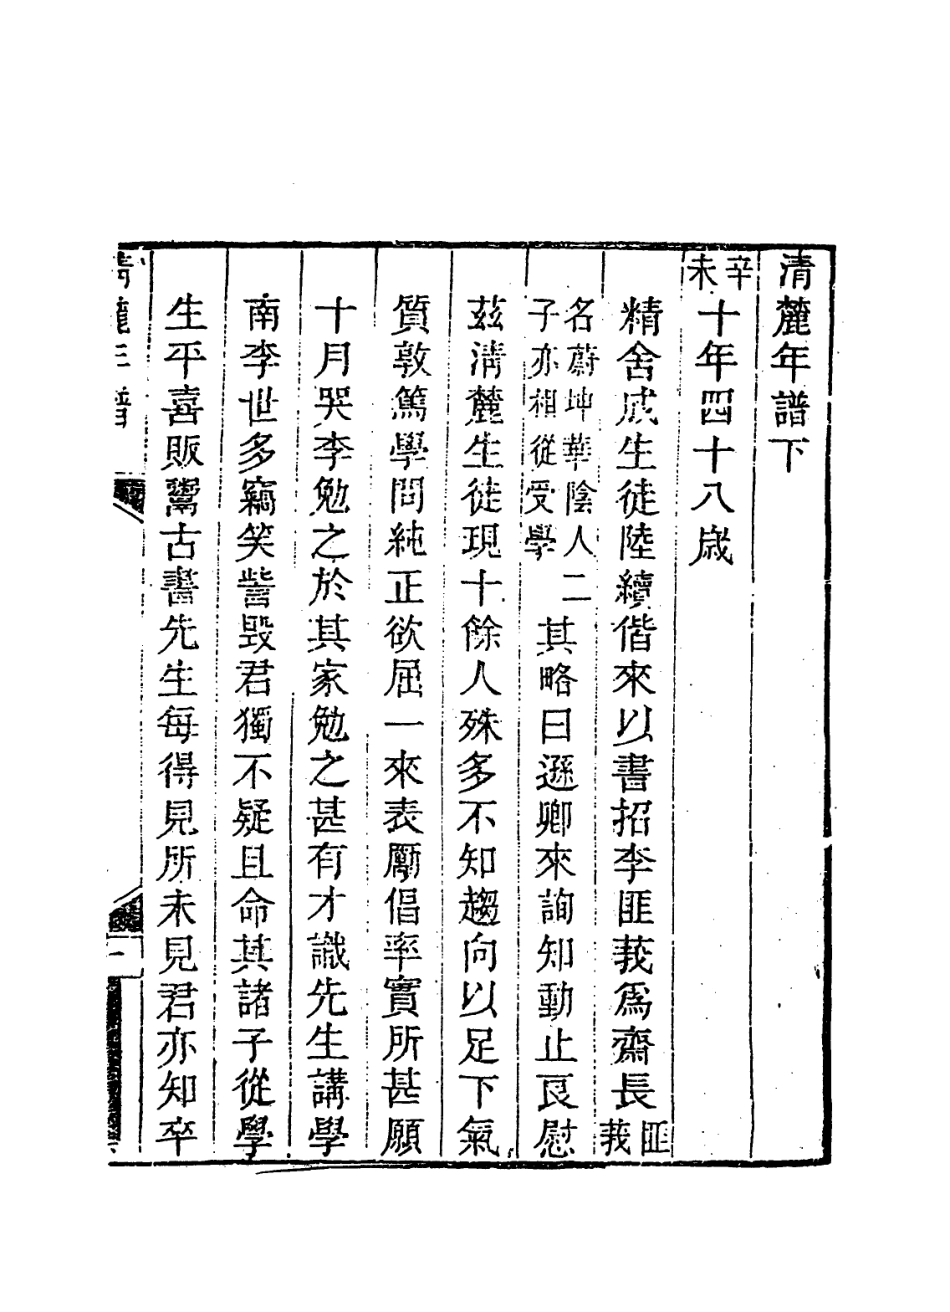 清麓年譜下
辛未十年四十八歲
精舍成生徒陸續偕來以書招李匪莪爲齋長匪莪
名蔚坤華陰人二子亦相從受學其略曰遜卿來詢知動止良慰
茲淸麓生徒現十餘人殊多不知趨向以足下氣
質敦篤學問純正欲屈一來表厲倡率實所甚願
十月哭李勉之於其家勉之甚有才識先生講學
南李世多竊笑訾毀君獨不疑且命其諸子從學
生平喜販鬻古書先生每得見所未見君亦知卒
清麓年譜
一